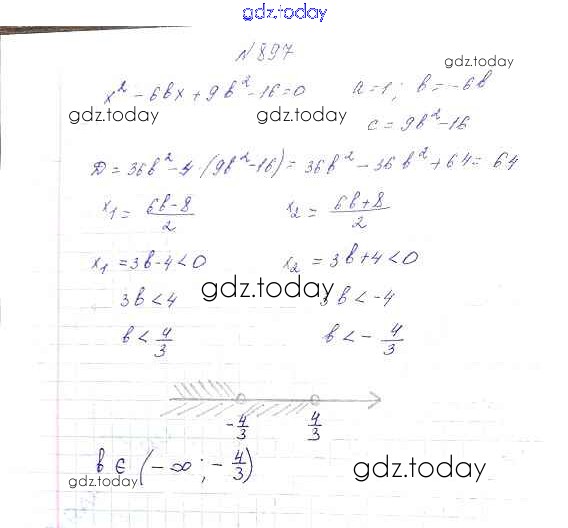 gdz.today
№897
gdz.today
x² - 6bx + 9b² - 16 = 0 a = 1; b = -6b
gdz.today gdz.today
c = 9b² - 16
D = 36b² - 4·(9b² - 16) = 36b² - 36b² + 64 = 64
x₁ = (6b - 8)/2 x₂ = (6b + 8)/2
x₁ = 3b - 4 < 0 x₂ = 3b + 4 < 0
gdz.today
3b < 4 3b < -4
b < 4/3 b < - 4/3
-4/3 4/3
b ∈ (-∞; -4/3)
gdz.today